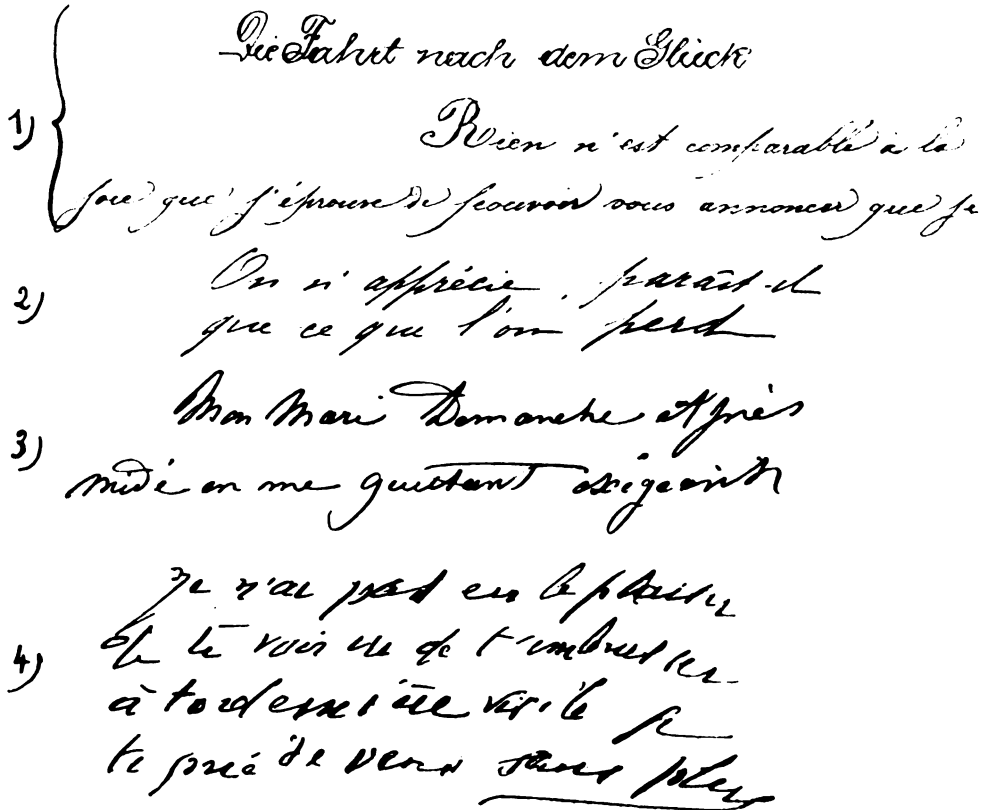 Die Fahrt nach dem Glück
1) Rien n'est comparable à la
joie que j'éprouve de pouvoir vous annoncer que je
2) On n'apprécie, paraît-il
que ce que l'on perd
3) Mon Mari Demanche et Après
midé en me quittant exigeait
4) Je n'ai pas eu le plaisir
de te voir ni de t'embrasser
à ta dernière visite je
te prie de venir sans plus